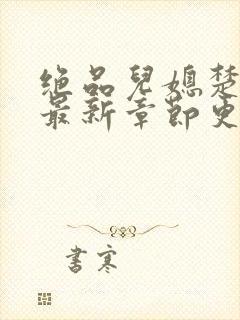 绝品儿媳楚
最新章节更
书寒